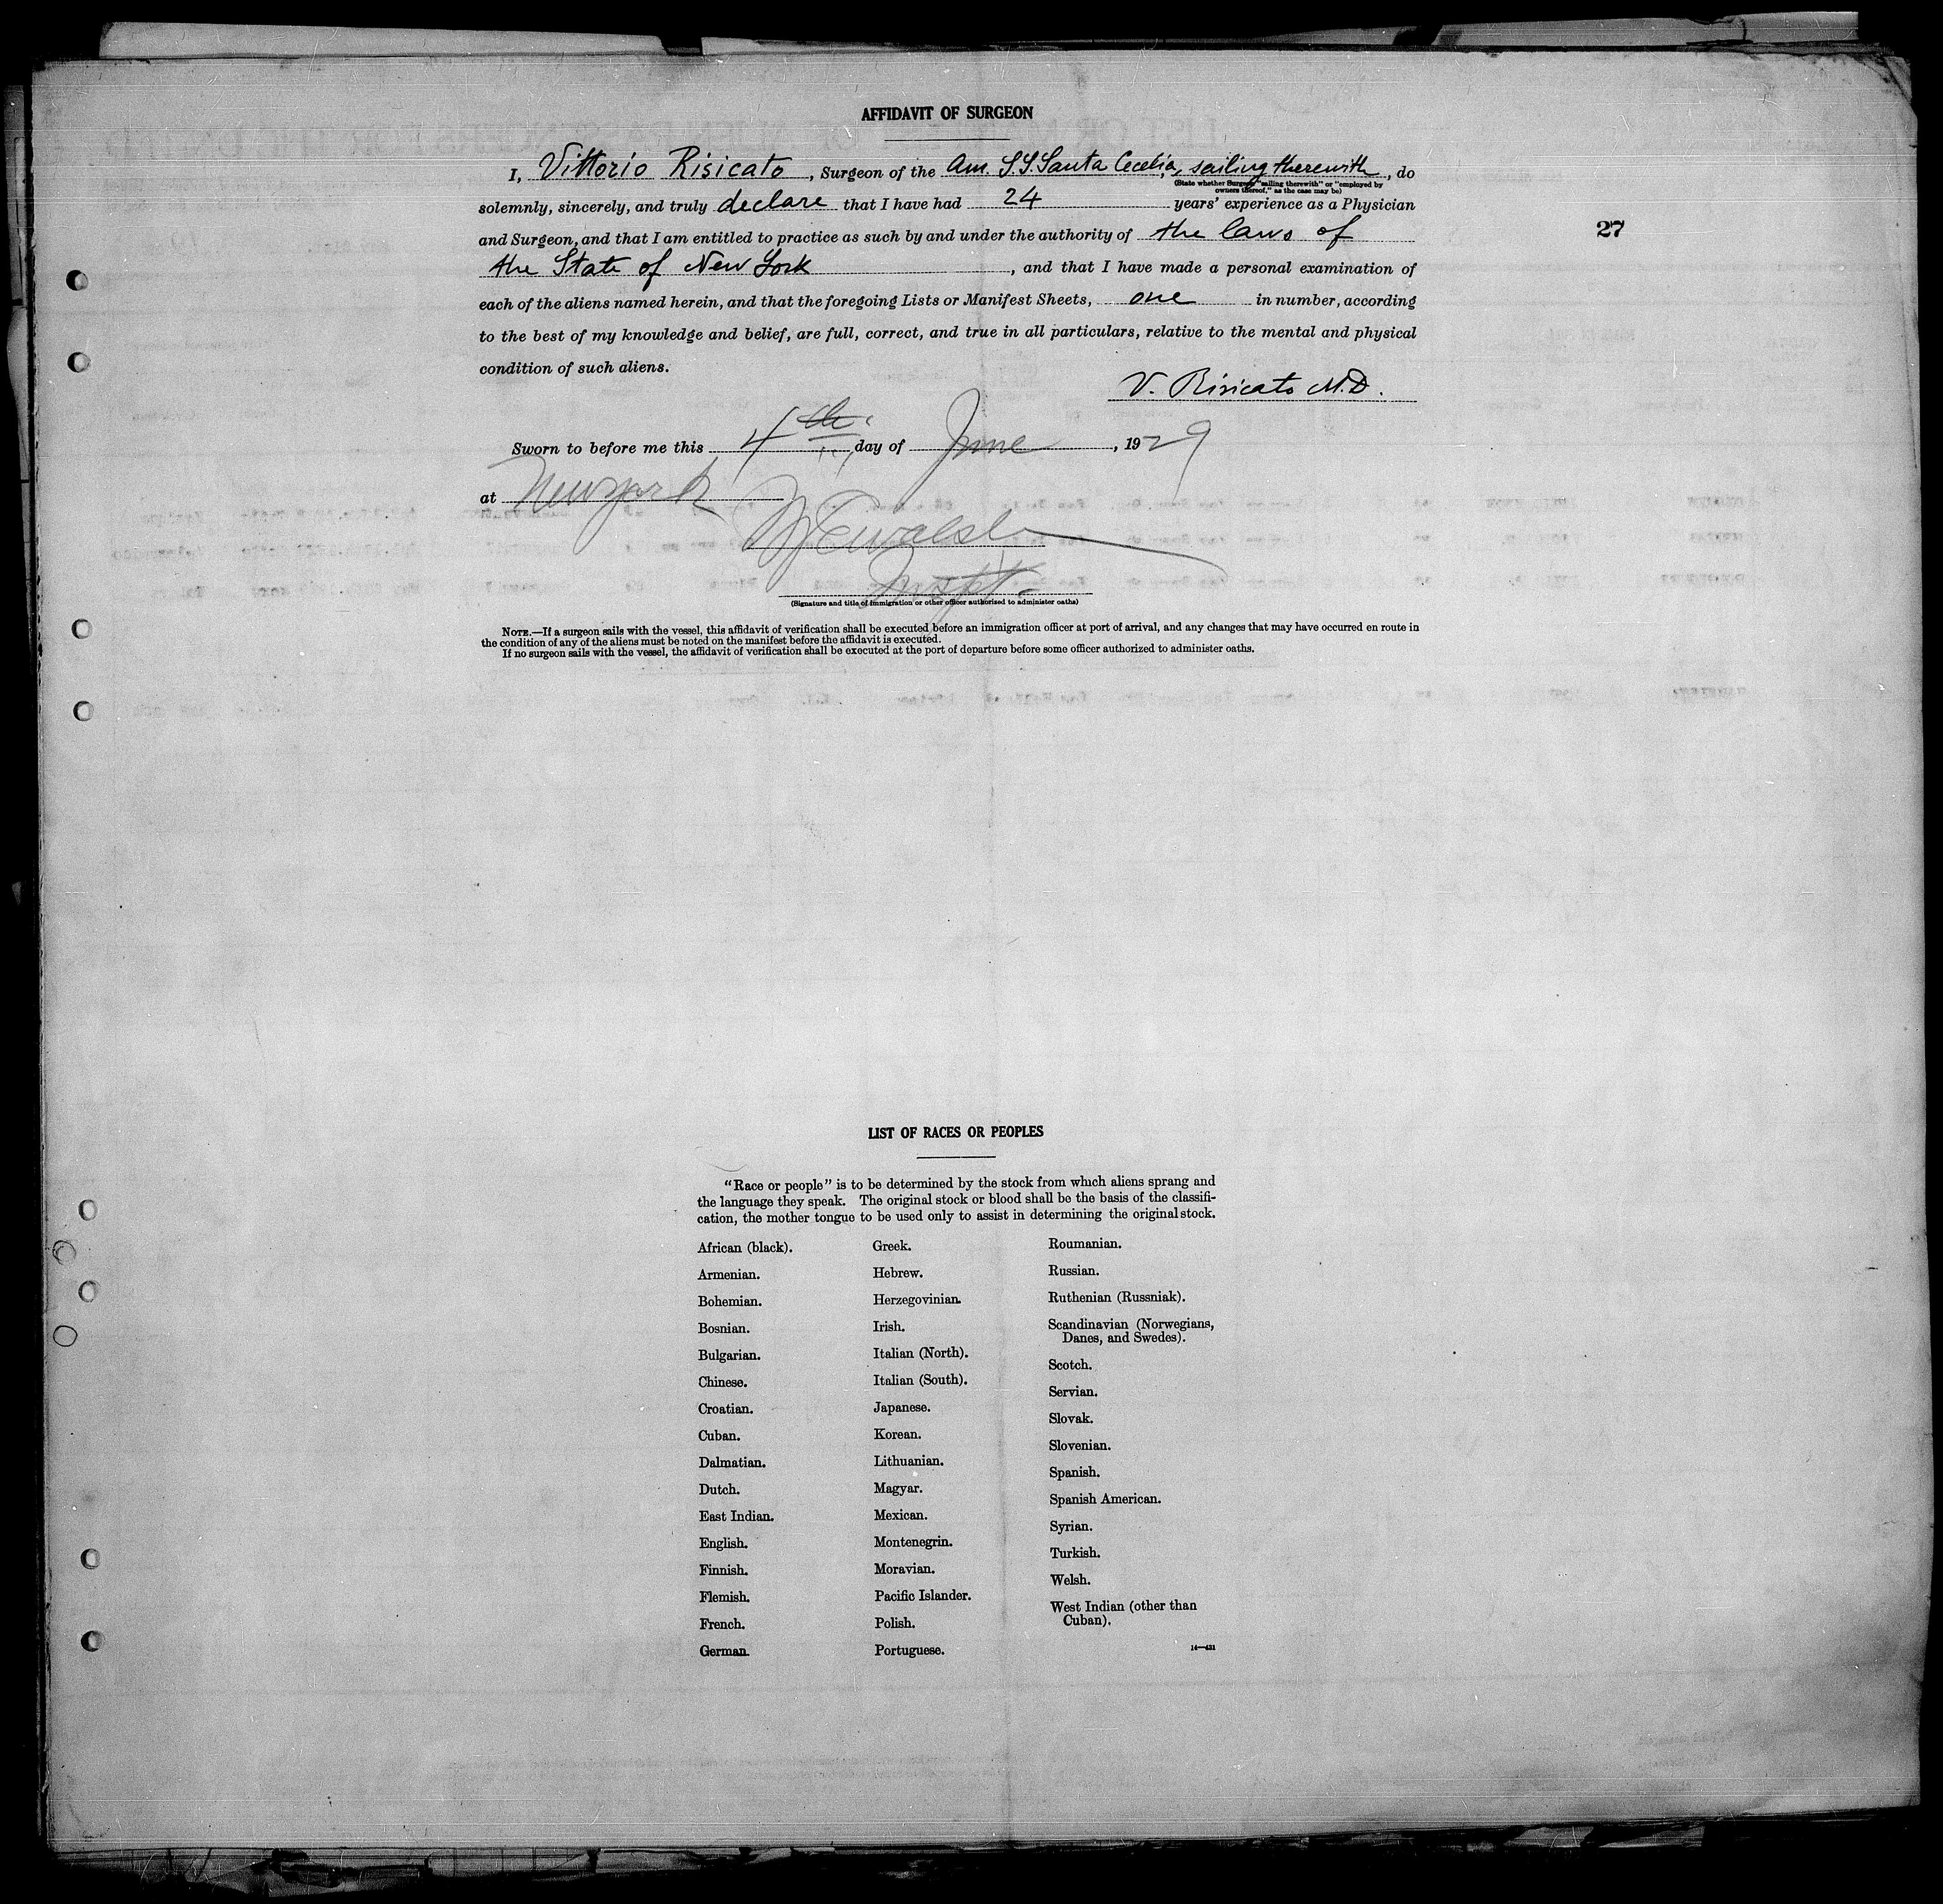 AFFIDAVIT OF SURGEON
I, Vittorio Risicato, Surgeon of the Am. S.S. Santa Cecelia, sailing therewith, do
(State whether Surgeon "sailing therewith" or "employed by
owners thereof," as the case may be)
solemnly, sincerely, and truly declare that I have had 24 years' experience as a Physician
27
and Surgeon, and that I am entitled to practice as such by and under the authority of the laws of
the State of New York, and that I have made a personal examination of
each of the aliens named herein, and that the foregoing Lists or Manifest Sheets, one in number, according
to the best of my knowledge and belief, are full, correct, and true in all particulars, relative to the mental and physical
condition of such aliens.
V. Risicato M.D.
Sworn to before me this 4th day of June, 1929
at New York
Inspt.
(Signature and title of immigration or other officer authorized to administer oaths)
NOTE.—If a surgeon sails with the vessel, this affidavit of verification shall be executed before an immigration officer at port of arrival, and any changes that may have occurred en route in
the condition of any of the aliens must be noted on the manifest before the affidavit is executed.
If no surgeon sails with the vessel, the affidavit of verification shall be executed at the port of departure before some officer authorized to administer oaths.
LIST OF RACES OR PEOPLES
"Race or people" is to be determined by the stock from which aliens sprang and
the language they speak. The original stock or blood shall be the basis of the classifi-
cation, the mother tongue to be used only to assist in determining the original stock.
African (black).
Armenian.
Bohemian.
Bosnian.
Bulgarian.
Chinese.
Croatian.
Cuban.
Dalmatian.
Dutch.
East Indian.
English.
Finnish.
Flemish.
French.
German.
Greek.
Hebrew.
Herzegovinian.
Irish.
Italian (North).
Italian (South).
Japanese.
Korean.
Lithuanian.
Magyar.
Mexican.
Montenegrin.
Moravian.
Pacific Islander.
Polish.
Portuguese.
Roumanian.
Russian.
Ruthenian (Russniak).
Scandinavian (Norwegians,
Danes, and Swedes).
Scotch.
Servian.
Slovak.
Slovenian.
Spanish.
Spanish American.
Syrian.
Turkish.
Welsh.
West Indian (other than
Cuban).